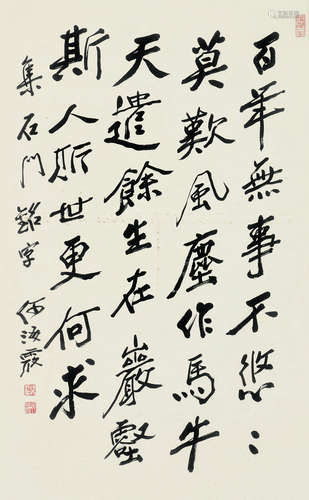 百年無事不悠〻
莫歎風塵作馬牛
天遣餘生在巖壑
斯人斯世更何求
集石門銘字 何海霞